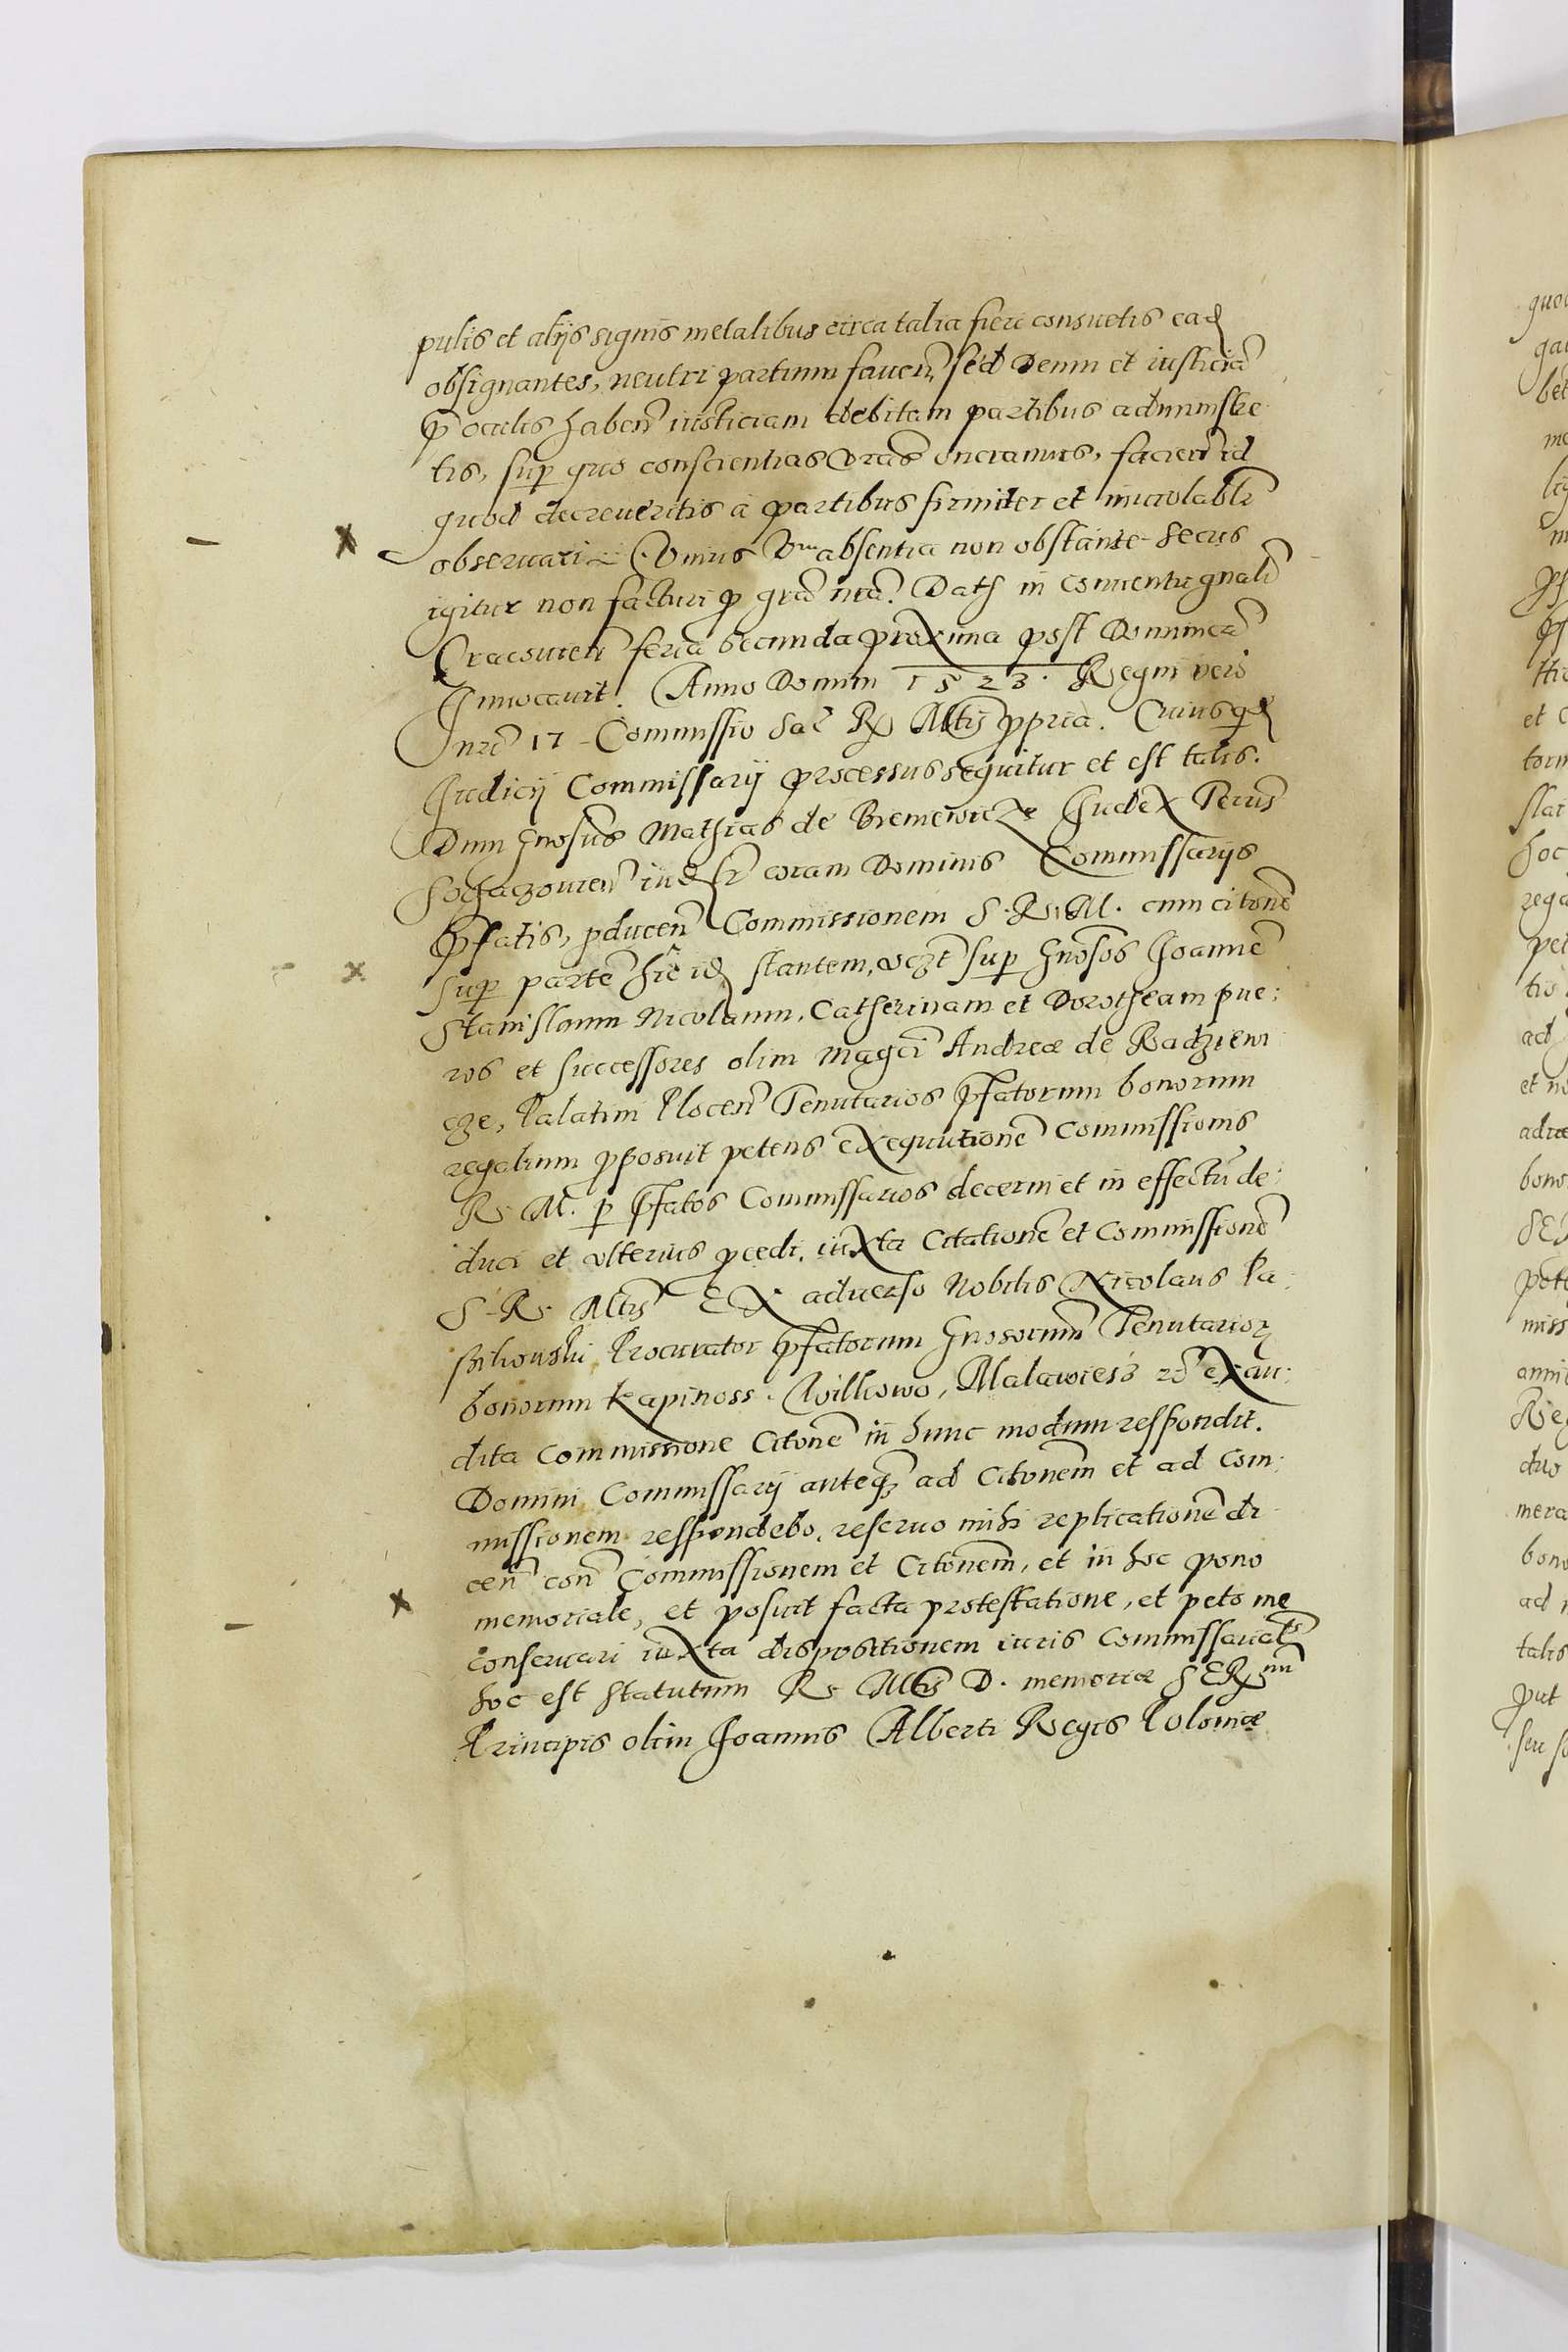 pulis et alijs signis metalibus circa talia fieri consuetis ead
obsignantes, neutri partium faven, sed Deum et iusticia
p oculis haben iusticiam debitam partibus administre
tis, sup quo conscientias vras oneramus, facien id
quod decreveritis à partibus firmiter et inviolablr
observari Unius vrm absentia non obstante. Secus
igitur non facturi p gra nra. Dat in Conventu gnali
Cracovien feria secunda proxima post Dominica
Invocavit. Anno Domini 1523. Regni vero
nri 17 - Commissio Sac R Mtis ppria. Cuius qd
Iudicij Commissarij processus sequitur et est talis.
Dum Gnosus Mathias de Biemiewicze Iudex Terris
Sochaczovien iud coram Dominis Commissarijs
pfatis, pducen Commissionem S. R. M. cum citone
sup parte hic id stantem, vczt sup Gnosos Joanne
Stanislaum Nicolaum, Catherinam et Dorotheam pue:
ros et successores olim Magci Andreæ de Radziewi
cze, Palatini Plocen Tenutarios pfatorum bonorum
regalium pposuit petens exequutione Commissionis
R. M. p pfatos Commissarios decerni et in effectu de:
duci et ulterius pcedi, iuxta Citatione et Commissione
S. R. Mtis Ex adverso Nobilis Nicolaus Pa:
Procurator pfatorum Gnosorum Tenutarior
bonorum Kapinoss. Wilkowo, Malawies exau:
dita Commissione Citone in hunc modum respondit.
Domini Commissarij anteq ad Citonem et ad Com:
missionem respondebo, reservo mihi replicatione di
cen con Commissionem et Citonem, et in hoc pono
memoriale, et posuit facta protestatione, et peto me
conservari iuxta dispositionem iuris Commissarialis
hoc est Statutum R. Mtis D. memoriæ SER
Principis olim Joannis Alberti Regis Poloniæ